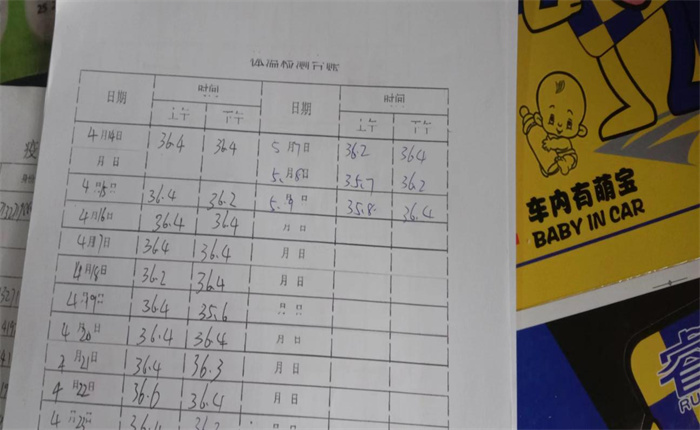 体温检测台账
日期 时间 日期 时间
上午 下午 上午 下午
4月14日 36.4 36.4 5月17日 36.2 36.4
月日 5.月18日 35.7 36.2
4月15日 36.4 36.2 5.月19日 35.8 36.4
4月16日 36.4 36.4 月日
4月17日 36.4 36.4 月日
4月18日 36.2 36.4 月日
4月19日 36.4 35.6 月日
4月20日 36.4 36.4 月日
月21日 36.4 36.3 月日
4月22日 36.6 36.4 月日
4月23日 36.2
疫
车内有萌宝
BABY IN CAR
RU